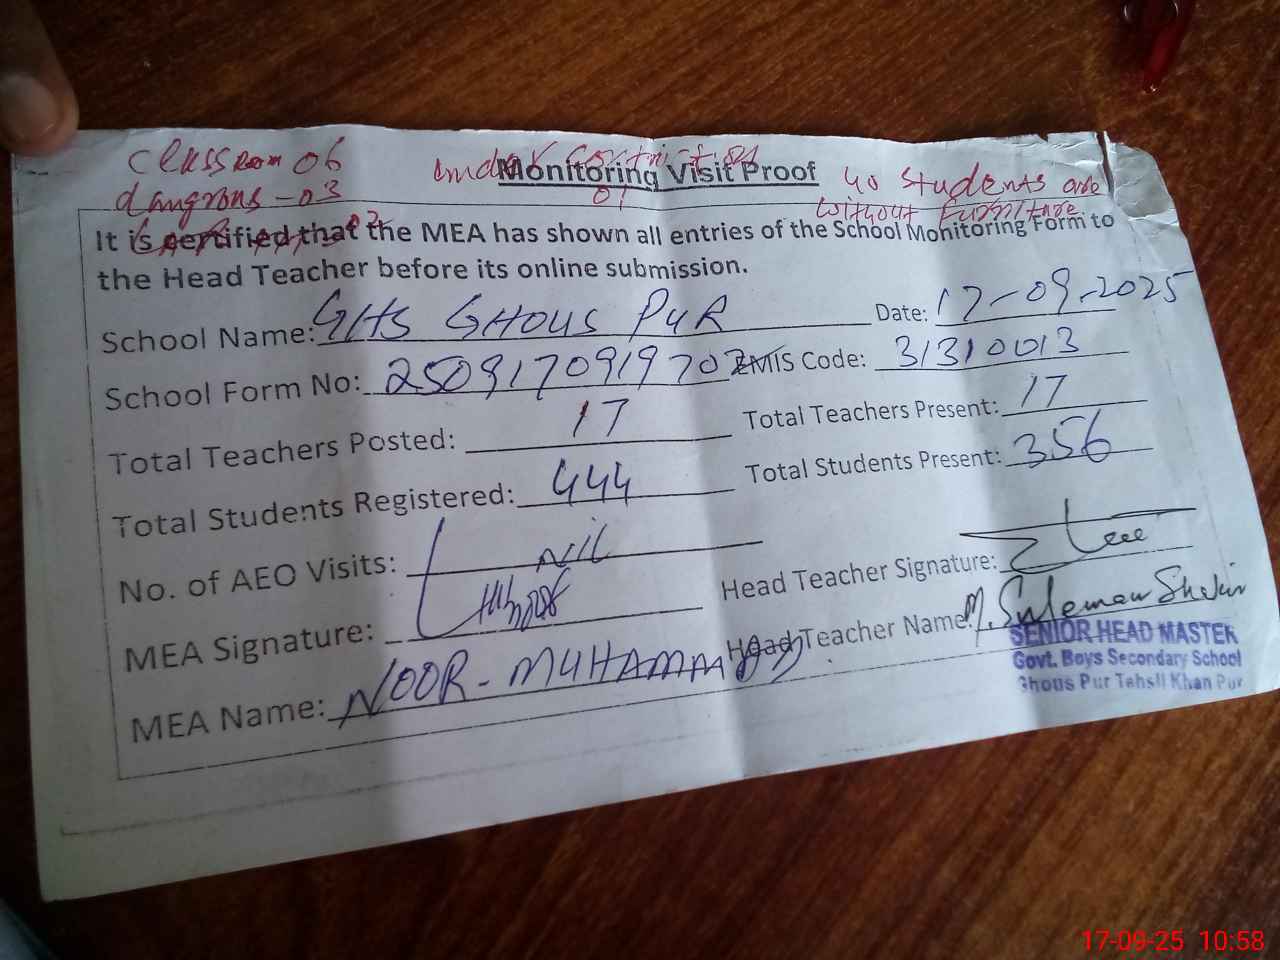 Class room 06
Monitoring Visit Proof
under
01
40 students are
without Furniture
dangrous - 03
It is certified that the MEA has shown all entries of the School Monitoring Form to
the Head Teacher before its online submission.
School Name: GHS GHOUS PUR Date: 17-09-2025
School Form No: 2509170919702 EMIS Code: 31310013
Total Teachers Posted: 17 Total Teachers Present: 17
Total Students Registered: 444 Total Students Present: 356
No. of AEO Visits: Nil Head Teacher Signature:
MEA Signature: Head Teacher Name: M. Suleman
MEA Name: NOOR-MUHAMMAD
SENIOR HEAD MASTER
Govt. Boys Secondary School
Ghous Pur Tehsil Khan Pur
17-09-25 10:58